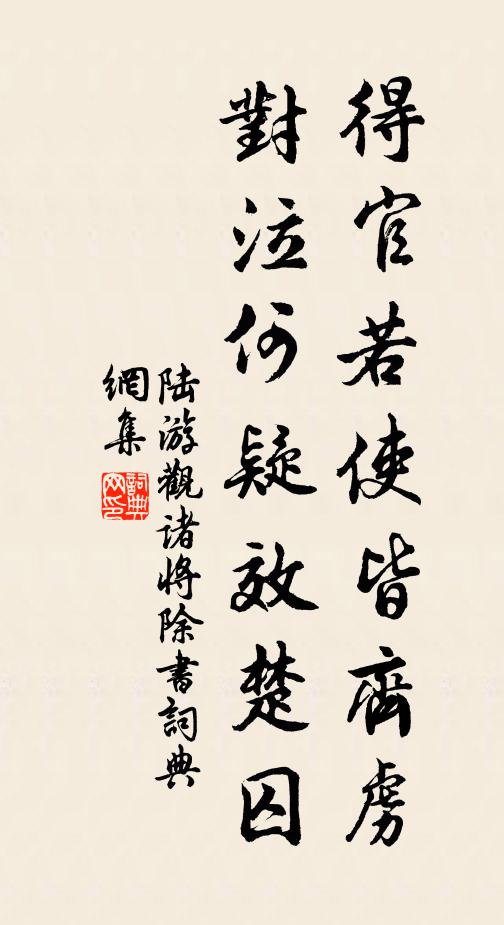 得官若使皆齊虜
對泣何疑效楚囚
陆游觀诸將除書詞典
網集
詞典
网印